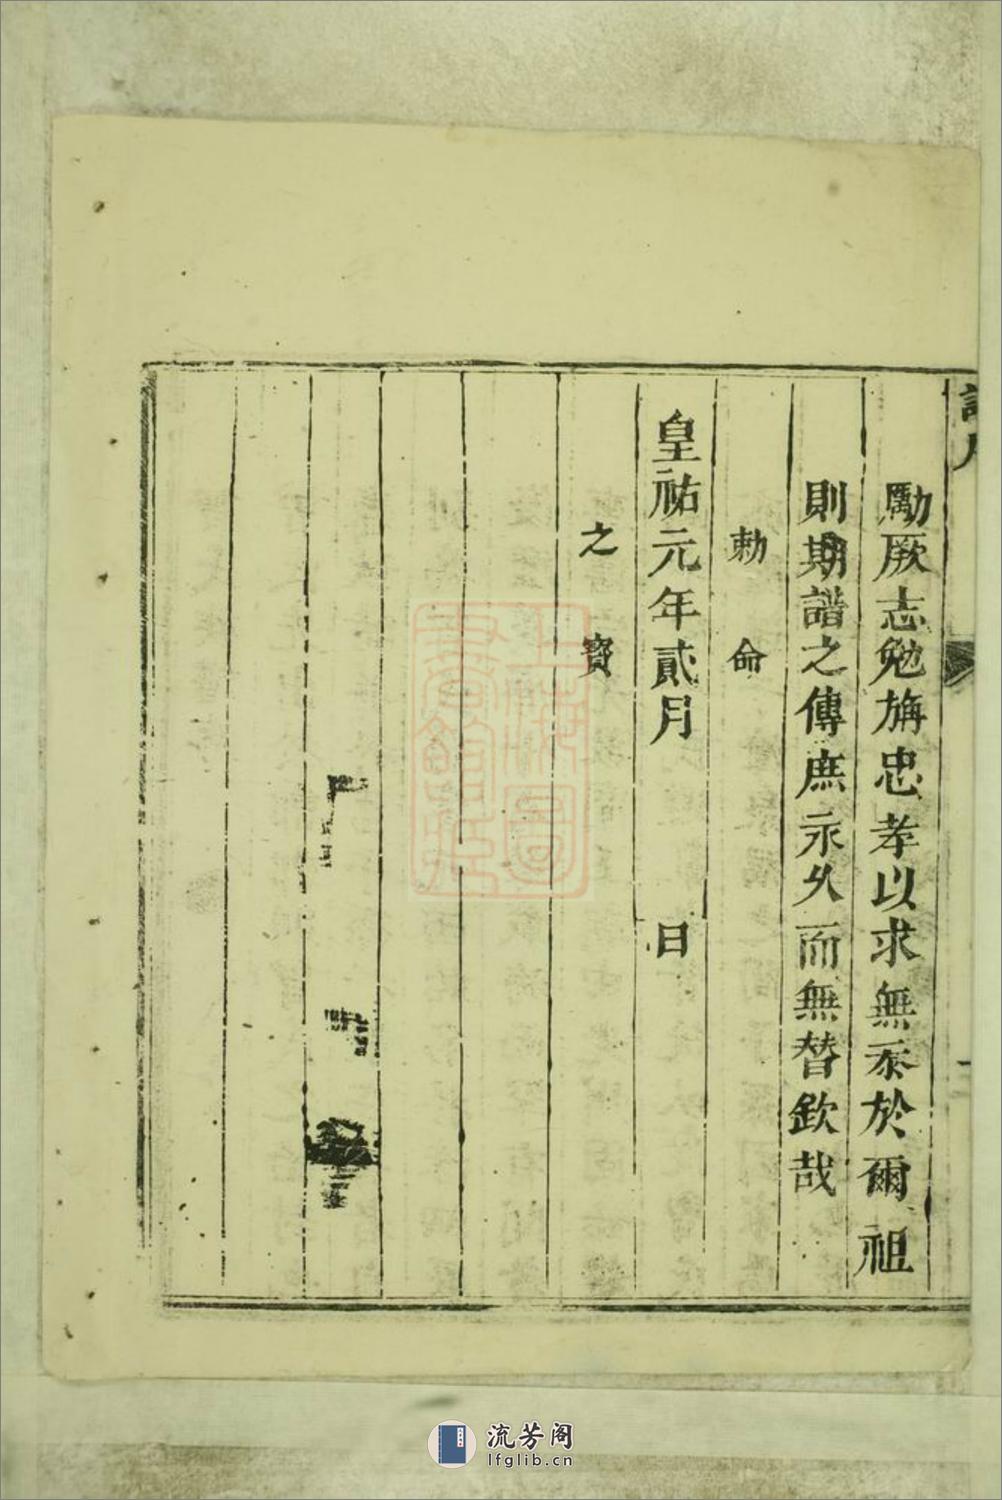 勵厥志勉旃忠孝以求無忝於爾祖
則期譜之傳庶永久而無替欽哉
勅命
皇祐元年貳月 日
之寶
上海圖書館藏
流芳阁
lfglib.cn